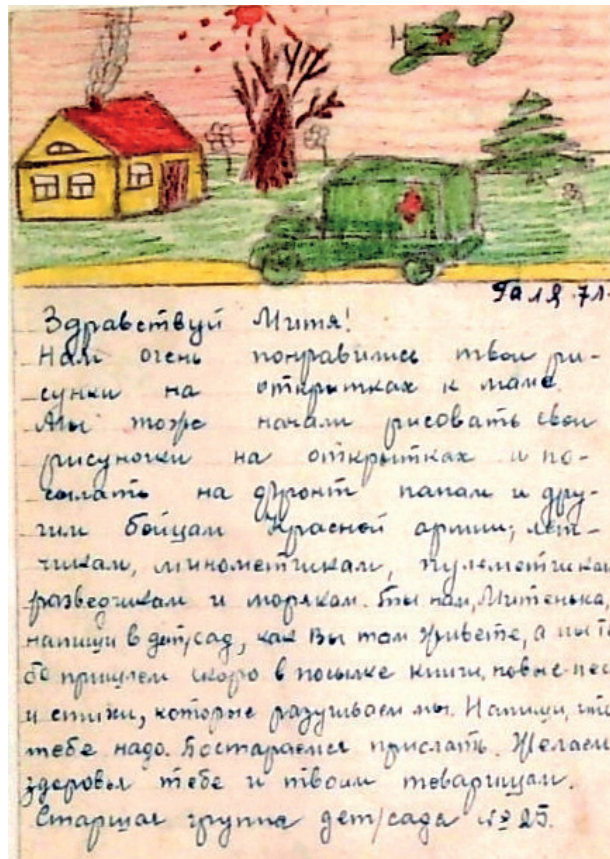 Галя 7 л.
Здравствуй Митя!
Нам очень понравились твои ри-
сунки на открытках к маме.
Мы тоже начали рисовать свои
рисуночки на открытках и по-
сылать на фронт папам и дру-
гим бойцам Красной армии; лёт-
чикам, минометчикам, пулеметчикам
разведчикам и морякам. Ты нам, Митенька,
напиши в дет/сад, как Вы там живете, а мы те
бе пришлем скоро в посылке книги, новые пес
и стихи, которые разучиваем мы. Напиши, что
тебе надо. Постараемся прислать. Желаем
здоровья тебе и твоим товарищам.
Старшая группа дет/сада №25.